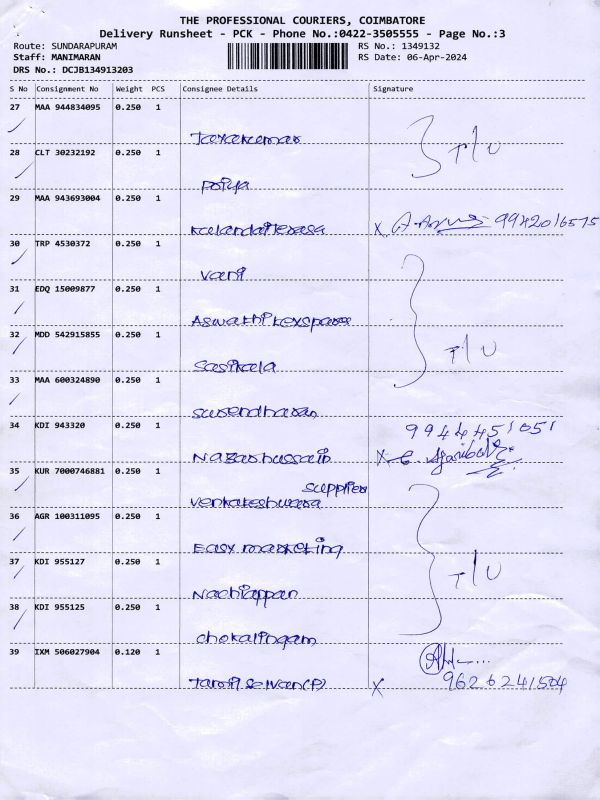 THE PROFESSIONAL COURIERS, COIMBATORE
Delivery Runsheet - PCK - Phone No.:0422-3505555 - Page No.:3
Route: SUNDARAPURAM RS No.: 1349132
Staff: MANIMARAN RS Date: 06-Apr-2024
DRS No.: DCJB134913203
S No Consignment No Weight PCS Consignee Details Signature
27 MAA 944834095 0.250 1
Jayakumar
28 CLT 30232192 0.250 1
Poiya
T/U
29 MAA 943693004 0.250 1
X 9942016575
30 TRP 4530372 0.250 1
Vani
31 EDQ 15009877 0.250 1
Aswathi
32 MDD 542915855 0.250 1
Sasikala
T/U
33 MAA 600324890 0.250 1
Surendharan
34 KDI 943320 0.250 1
9944451051
Nazarhussain X
35 KUR 7000746881 0.250 1
Supplier
Venkateshwara
36 AGR 100311095 0.250 1
Easy marketing
37 KDI 955127 0.250 1
T/U
Nachiappan
38 KDI 955125 0.250 1
Chokalingam
39 IXM 506027904 0.120 1
Selvan(P) X 9626241504